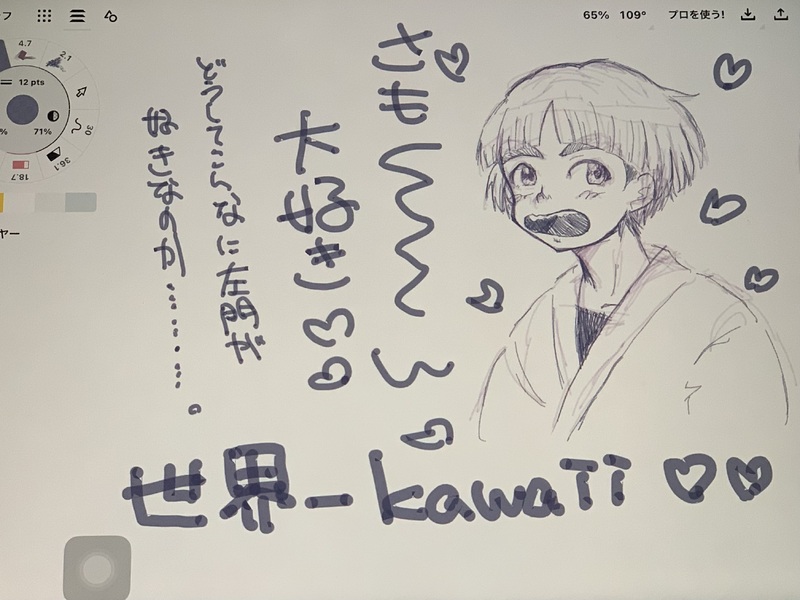 65% 109° プロを使う!
4.7
2.1
12 pts
71%
30
36.1
18.7
さも〜〜〜ん
大好き♡♡
どうしてこんなに左門が
好きなのか………。
世界一kawaii♡♡